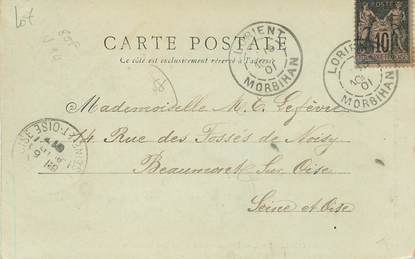 Lot
CARTE POSTALE
Ce côté est exclusivement réservé à l'adresse
LORIENT
01
MORBIHAN
LORIENT
01
MORBIHAN
POSTE
10
58
Mademoiselle M. L. Lefèvre
44 Rue des Fossés de Noisy
Beaumont Sur Oise
Seine et Oise
SEINE-ET-OISE